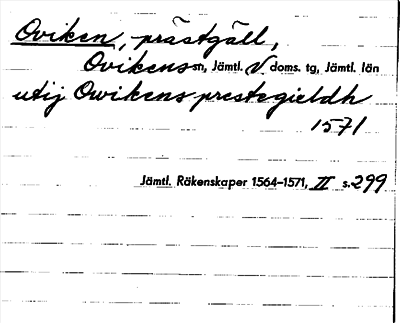 Oviken, prästgäll,
Ovikens sn, Jämtl. V doms. tg, Jämtl. län
utij Owikens prestegieldh
1571
Jämtl. Räkenskaper 1564–1571, II s. 299